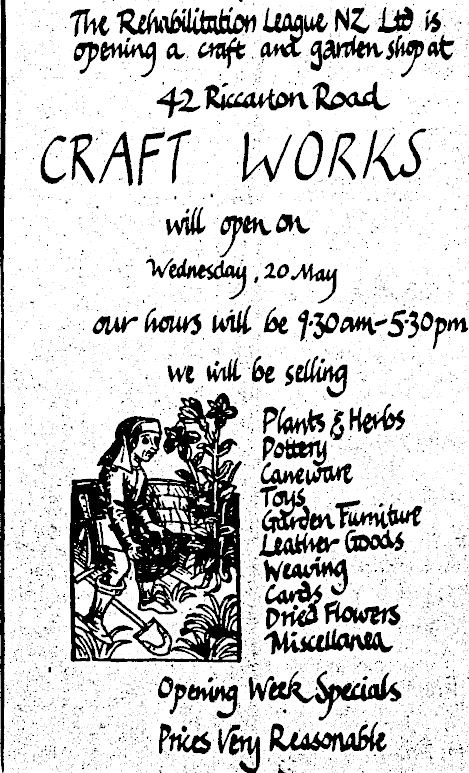 The Rehabilitation League NZ Ltd is
opening a craft and garden shop at
42 Riccarton Road
CRAFT WORKS
will open on
Wednesday, 20 May
our hours will be 9·30am-5·30pm
we will be selling
Plants & Herbs
Pottery
Caneware
Toys
Garden Furniture
Leather Goods
Weaving
Cards
Dried Flowers
Miscellanea
Opening Week Specials
Prices Very Reasonable